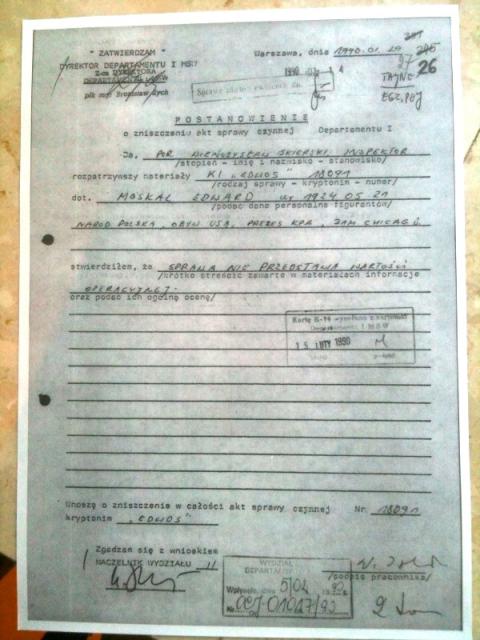 " ZATWIERDZAM "
DYREKTOR DEPARTAMENTU I MSW
Z-ca DYREKTORA
DEPARTAMENTU
płk mgr Bronisław Zych
Warszawa, dnia 1990.01.29
26
TAJNE
EGZ. POJ
POSTANOWIENIE
o zniszczeniu akt sprawy czynnej Departamentu I
Ja, POR. INSPEKTOR
/stopień - imię i nazwisko - stanowisko/
rozpatrzywszy materiały KI "EDWOS" 18091
/rodzaj sprawy - kryptonim - numer/
dot. MOSKAL EDWARD ur 1924.05.21
/podać dane personalne figurantów/
NAROD. POLSKA, OBYW. USA, PREZES KPA, ZAM CHICAGO
stwierdziłem, że SPRAWA NIE PRZEDSTAWIA WARTOŚCI
/krótko streścić zawarte w materiałach informacje
OPERACYJNEJ.
oraz podać ich ogólną ocenę/
Kartę E-14
Departamentu I MSW
15. LUTY 1990
Wnoszę o zniszczenie w całości akt sprawy czynnej Nr 18091
kryptonim "EDWOS"
Zgadzam się z wnioskiem
NACZELNIK WYDZIAŁU
/podpis pracownika/
WYDZIAŁ
Wpłynęło, dnia 5/04
Nr